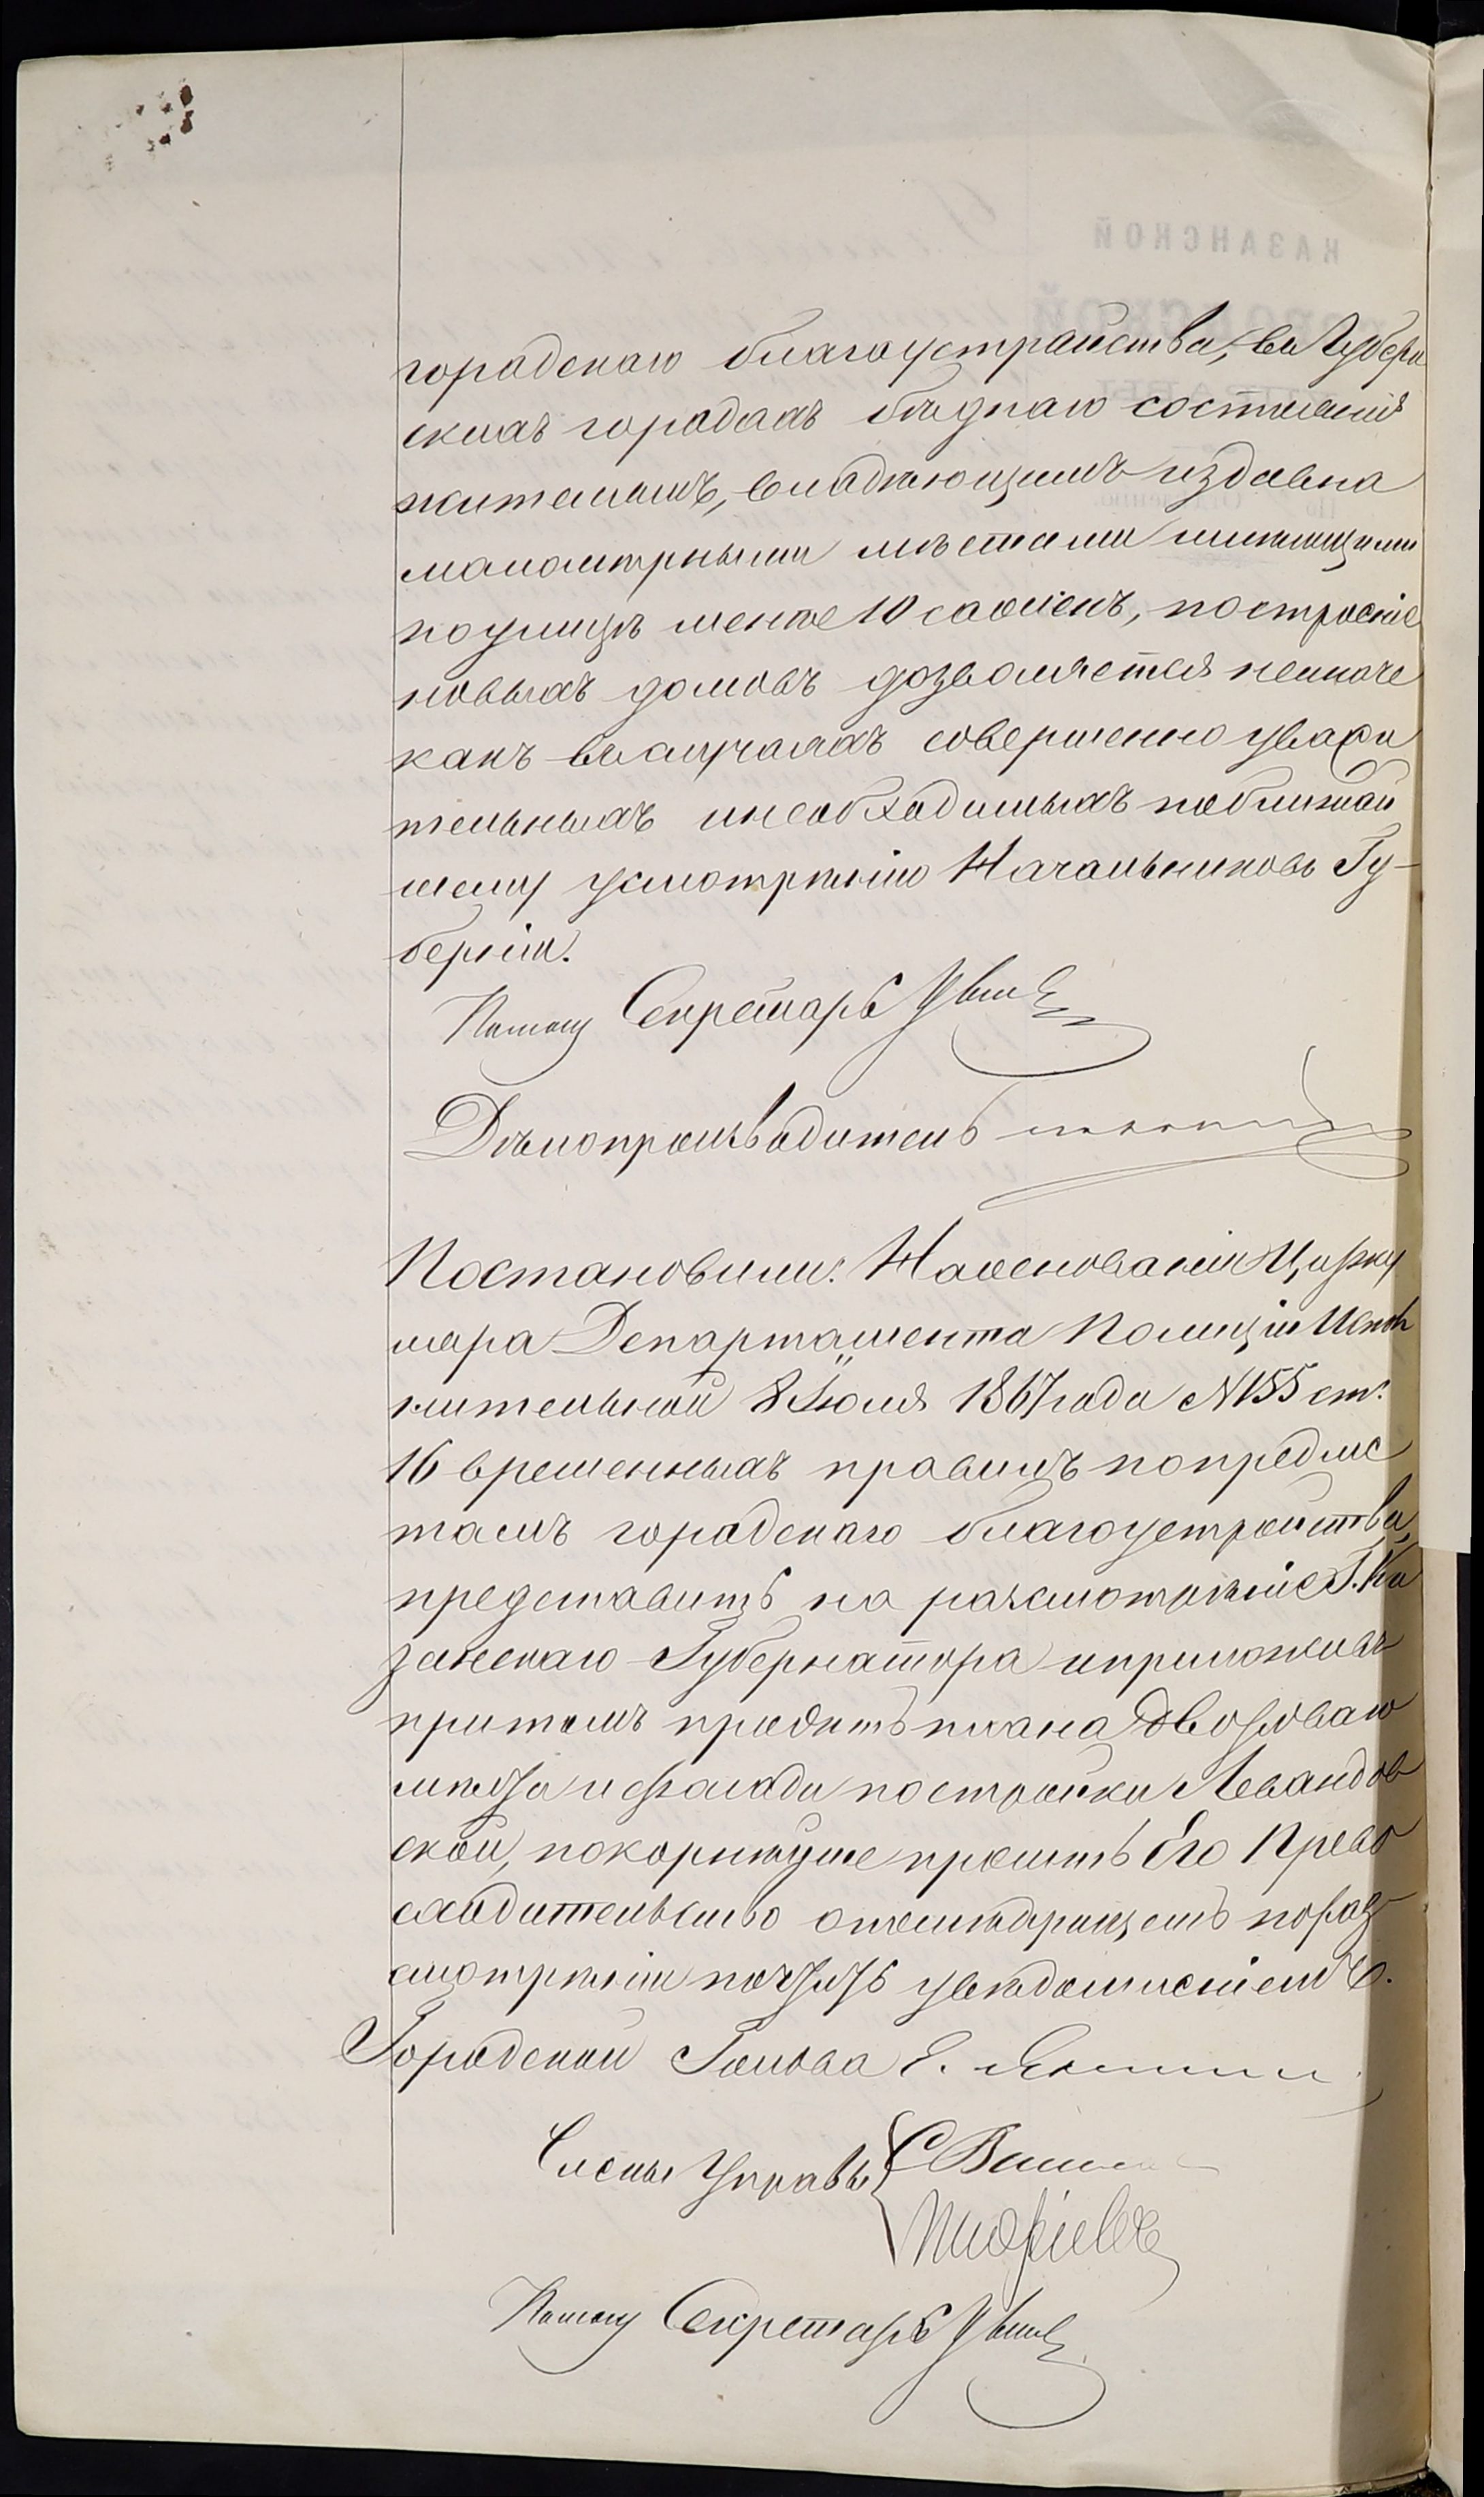 городскаго благоустройства, въ Губерн
скихъ городахъ бѣднаго состоянія
жителямъ, владѣющимъ издавна
маломѣрными мѣстами имѣющими
по улицѣ менѣе 10 саженъ, построеніе
новыхъ домовъ дозволяется неиначе
какъ въ случаяхъ совершенно уважи
тельныхъ и необходимыхъ по ближай
шему усмотрѣнію Начальниковъ Гу-
берніи.
Секретарь
Дѣлопроизводитель
Постановили: На основаніи Цирку
ляра Департамента Полиціи Испол
нительной 8 Іюля 1867 года № 155 ст.
16 временныхъ правилъ по предме
тамъ городскаго благоустройства,
представить на разсмотрѣніе Г. Ка
занскаго Губернатора и приложивъ
при томъ проэктъ плана дворового
мѣста и фасада постройки Левандов
ской, покорнѣйше просить Его Прево
сходительство о послѣдующемъ по раз
смотрѣніи почтить увѣдомленіемъ.
Городской Голова Е.
Члены Управы С
Секретарь
КАЗАНСКОЙ